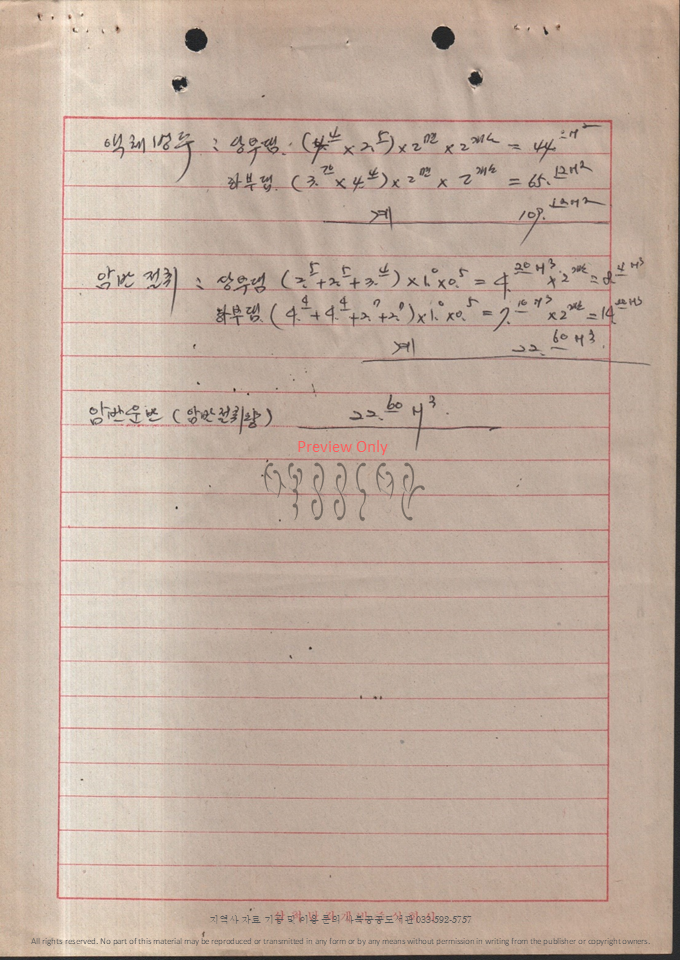 액체방수 : 상부댐. (4.4 × 2.5) × 2면 × 2개소 = 44.00M2
하부댐. (3.70 × 4.4) × 2면 × 2개소 = 65.12M2
계 109.12M2
암반절취 : 상부댐 (2.5+2.5+3.4) × 1.0 × 0.5 = 4.20M3 × 2개소 = 8.4M3
하부댐. (4.4+4.4+2.7+2.7) × 1.0 × 0.5 = 7.10M3 × 2개소 = 14.20M3
계 22.60M3.
암반운반 (암반절취량) 22.60M3.
Preview Only
지역사 자료 기증 및 이용 문의 사북공공도서관 033-592-5757
All rights reserved. No part of this material may be reproduced or transmitted in any form or by any means without permission in writing from the publisher or copyright owners.